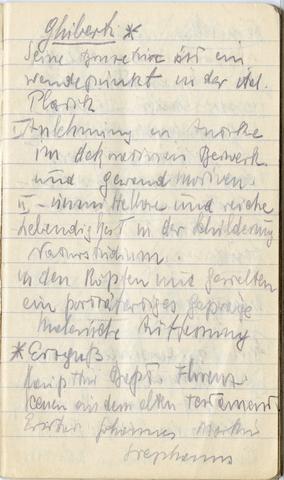 Ghiberti *
Seine ist ein
wendepunkt in der ital.
Plastik
I Anlehnung an Antike
im dekorativen Beiwerk
und gewand motiven.
II - unmittelbare und reiche
Lebendigkeit in der Schilderung
Naturstudium.
in den Köpfen und gestalten
ein porträtartiges gepräge
malerische Auffassung
* Erzguß
Bapt. Florenz
scenen aus dem alten testament
Johannes
Stephanus